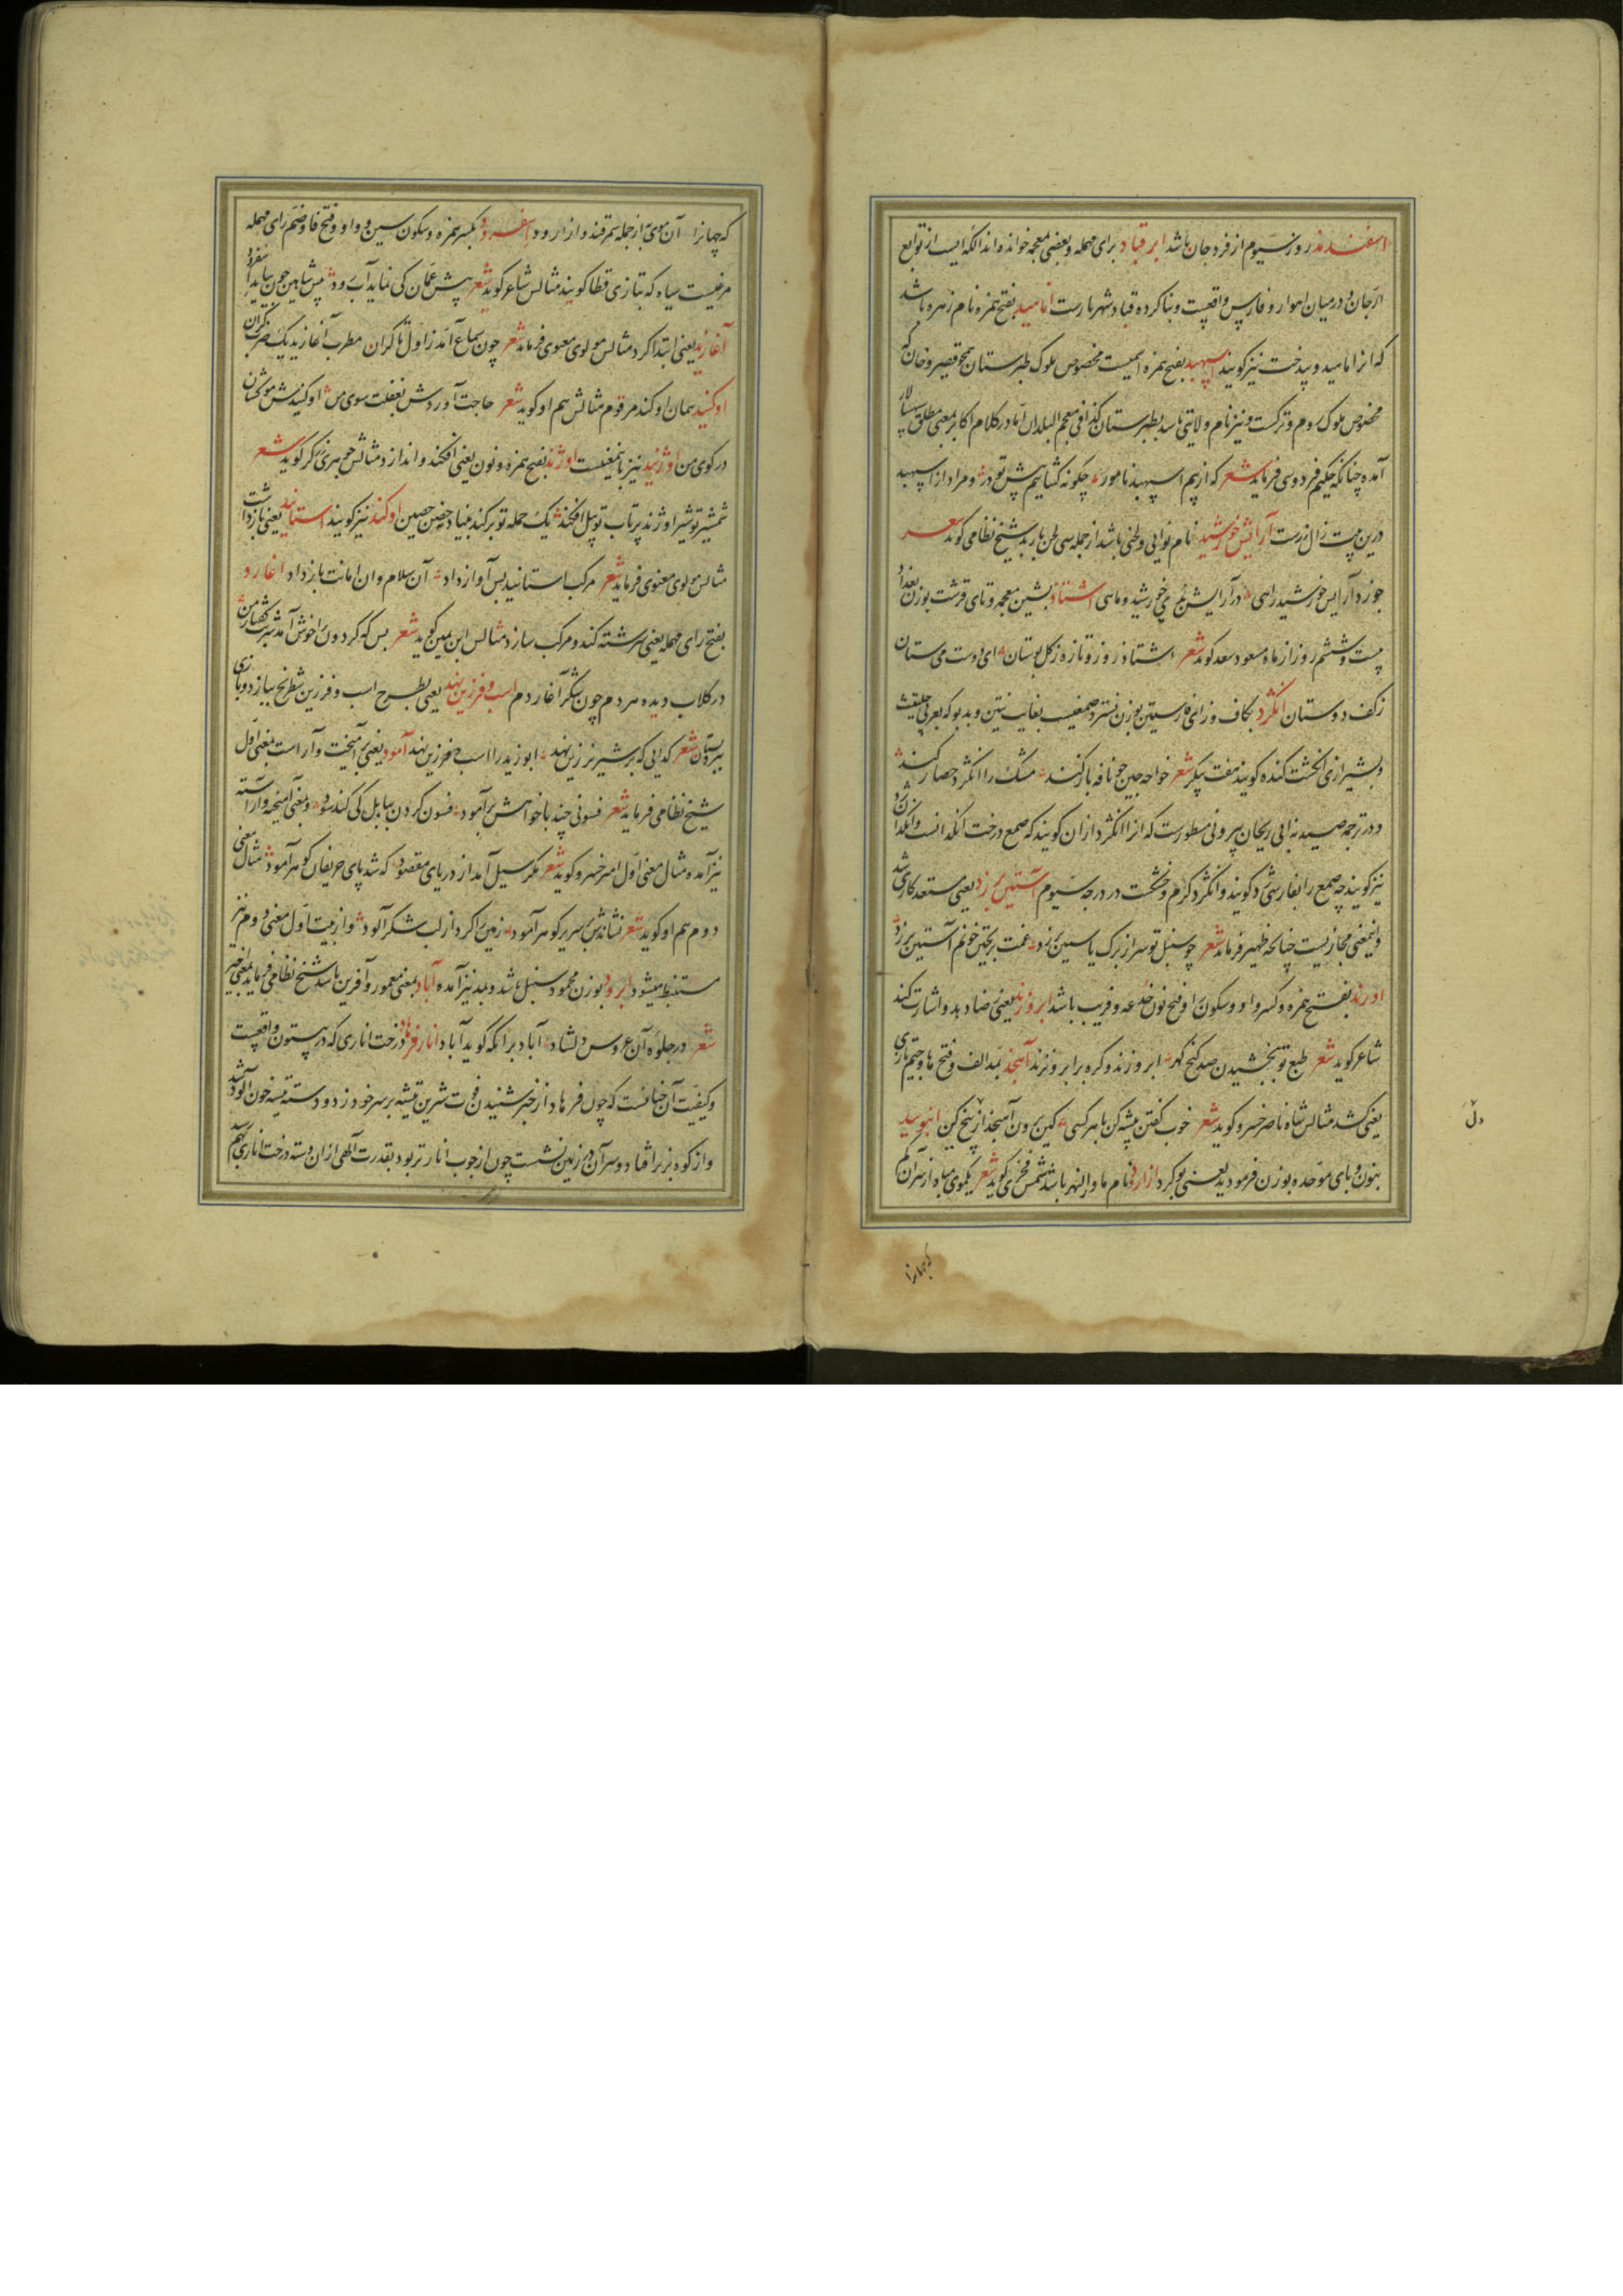 اسفندمذ روز سیوم از فرد جان باشد ابر قباد برای مهمله و بعضی بمعجمه خوانده‌اند الکه‌ایست از توابع
ارجان و در میان اهواز و فارس واقعست و بنا کرده قباد شهریارست اناهید بفتح همزه نام زهره باشد
که انرا ناهید و بیدخت نیز کویند اسپهبد بفتح همزه اسمیست مخصوص ملوک طبرستان همچو قیصر و خان که
مخصوص ملوک روم و ترکست و نیز نام ولایتی باشد بطبرستان کذا فی معجم البلدان اما در کلام اکابر بمعنی مطلق سپهسالار
آمده چنانکه حکیم فردوسی فرماید شعر که از بیم اسپهبد نامور چکونه کشاییم پیش تو در و مراد از اسپهبد
درین بیت زال زرست آرایش خورشید نام نوایی و لحنی باشد از جمله سی لحن باربد شیخ نظامی کوید شعر
چو زد آرایش خورشید راهی در آرایش بدی خورشید و ماهی اشتاذ بشین معجمه و تای قرشت بوزن بغداد
بیست و ششم روز از ماه مسعود سعد کوید شعر اشتاذ روز و تازه ز کل بوستان ای دوست می ستان
ز کف دوستان انکژد بکاف و زای فارسیتین بوزن نسترد صمغیست بغایت نتین و بدبو که بعربی حلتیت
و بشیرازی انکشت کنده کویند هفت پیکر شعر خواجه چین چو نافه بار کند مشک را انکژد حصار کند
و در ترجمه صیدنه ابی ریحان بیرونی مسطورست که انرا انکژد از ان کویند که صمغ درخت انکدانست و انکدان ژد
نیز کویند چه صمغ را بفارسی ژد کویند و انکژد کرم و خشکست در درجه سیوم آستین بر زد یعنی مستعد کاری شد
و اینمعنی مجازیست چنانچه ظهیر فرماید شعر چو سنبل تو سر از برک یاسمین بر زد غمت بریختن خونم آستین بر زد
اورند بفتح همزه و کسر واو و سکون را و فتح نون خدعه و فریب باشد ابرو زند یعنی رضا دهد و اشارت کند
شاعر کوید شعر طبع تو ببخشیدن صد کنج کهر ابرو زند و کره بر ابرو نزند آهنجد بمد الف و فتح ها و جیم تازی
یعنی کشد مثالش شاه ناصر خسرو کوید شعر خوب کفتن پیشه کن با هر کسی کین برون آهنجد از بیخ کین انبوید
بنون و بای موحده بوزن فرمود یعنی بو کرد ازارود نام ماوراء النهر باشد شمس فخری کوید شعر یکموی مباد از سرآن کم
که چهانرا
دل
که چهانرا آن موی به از جمله سمرقند و ازارود اسفرود بکسر همزه و سکون سین و واو و فتح فا و ضم رای مهمله
مرغیست سیاه که بتازی قطا کویند مثالش شاعر کوید شعر پیش عمان کی نماید آب رود پیش شاهین چون بپاید اسفرود
آغازید یعنی ابتدا کرد مثالش مولوی معنوی فرماید شعر چون سماع آمد ز اول تا کران مطرب آغازید یک ضرب کران
اوکنید همان اوکند مرقوم مثالش هم او کوید شعر حاجت آوردش بغفلت سوی من اوکنیدش مو کشان
در کوی من اوژنید نیز باینمعنیست اوژند بفتح همزه و نون یعنی افکند و اندازد مثالش جوهری زرکر کوید شعر
شمشیر تو شیر اوژند پرتاب تو پیل افکند یک حمله تو بر کند بنیاد حصن حصین اوکند نیز کویند استانید یعنی بازداشت
مثالش مولوی معنوی فرماید شعر مرکب استانید پس آواز داد آن سلام و ان امانت باز داد اغارد
بفتح رای مهمله یعنی سرشته کند و مرکب سازد مثالش ابن یمین کوید شعر بس که کردون را خوش آمد شربت کفتار من
در کلاب دیده هر دم چون شکر آغاردم اسب و فرزین نهد یعنی بطرح اسب و فرزین شطرنج ببازد و بازی
ببرد شعر کدایی که بر شیر نر زین نهد ابو زید را اسب و فرزین نهد آمود یعنی برآمیخت و آراست بمعنی اول
شیخ نظامی فرماید شعر فسونی چند با خواهش برآمود فسون کردن ببابل کی کند سود و بمعنی آمیخته و آراسته
نیز آمده مثال معنی اول امیر خسرو کوید شعر مکر سیل آمد از دریای مقصود که شد پای حریفان کوهر آمود مثال معنی
دوم هم او کوید شعر نشاندش بر سریر کوهر آمود زمین را کرد از لب شکر آلود و از بیت اول معنی دوم نیز
مستنبط میشود ابرود بوزن محمود سنبل باشد و بید نیز آمده آباد بمعنی معمور و آفرین باشد شیخ نظامی فرماید بمعنی اخیر
شعر در جلوه آن عروس دلشاد آباد بر انکه کوید آباد انار فرهاد درخت اناری که در بیستون واقعست
و کیفیت آن چنانست که چون فرهاد از خبر شنیدن فوت شیرین تیشه بر سر خود زد و دسته تیشه خون آلود شد
و از کوه بزیر افتاد و سر آن در زمین نشست چون از چوب انار تر بود بقدرت آلهی از ان دسته درخت اناری بهم رسید